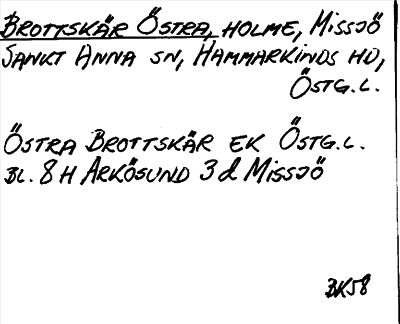 BROTTSKÄR ÖSTRA, HOLME, MISSJÖ
SANKT ANNA SN, HAMMARKINDS HD,
ÖSTG.L.
ÖSTRA BROTTSKÄR EK ÖSTG.L.
BL. 8 H ARKÖSUND 3 d MISSJÖ
BK58